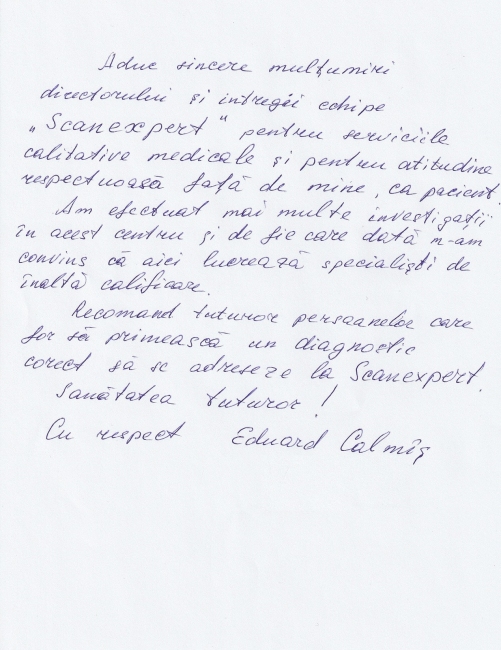 Aduc sincere mulțumiri
directorului și întregii echipe
„Scanexpert" pentru serviciile
calitative medicale și pentru atitudine
respectuoasă față de mine, ca pacient.
Am efectuat mai multe investigații
în acest centru și de fie care dată m-am
convins că aici lucrează specialiști de
înaltă calificare.
Recomand tuturor persoanelor care
for să primească un diagnostic
corect să se adreseze la Scanexpert.
Sanătatea tuturor!
Cu respect Eduard Calmîș